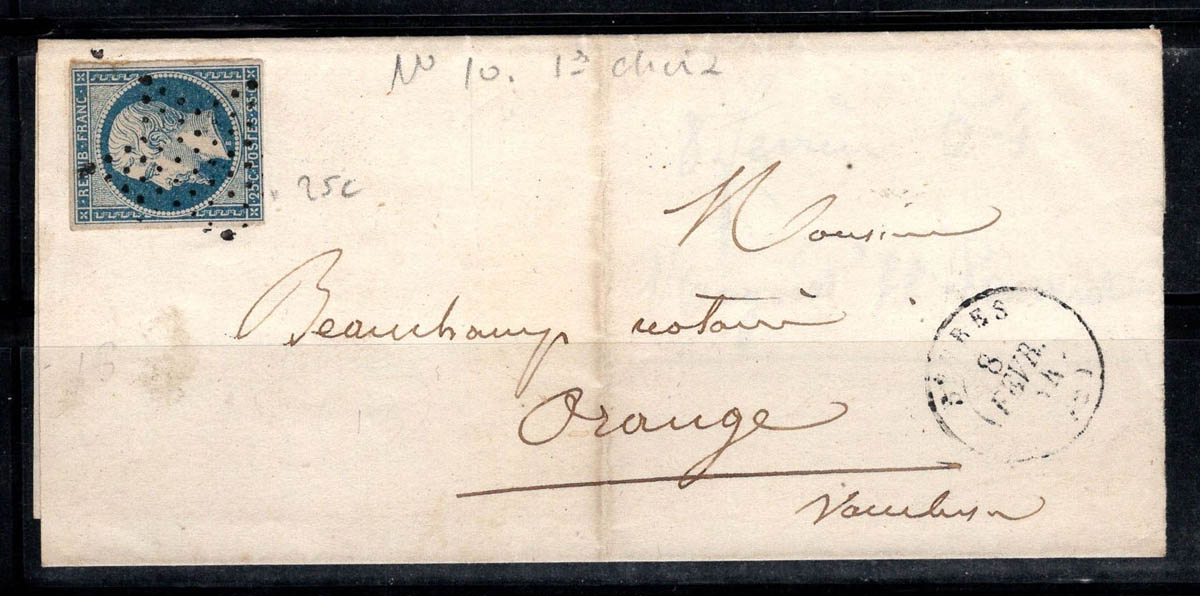 No 10. 1er choix
REPUB · FRANC ·
25c · POSTES · 25c
25c
Monsieur
Beauchamp notaire
Orange
Vaucluse
8
FEVR.